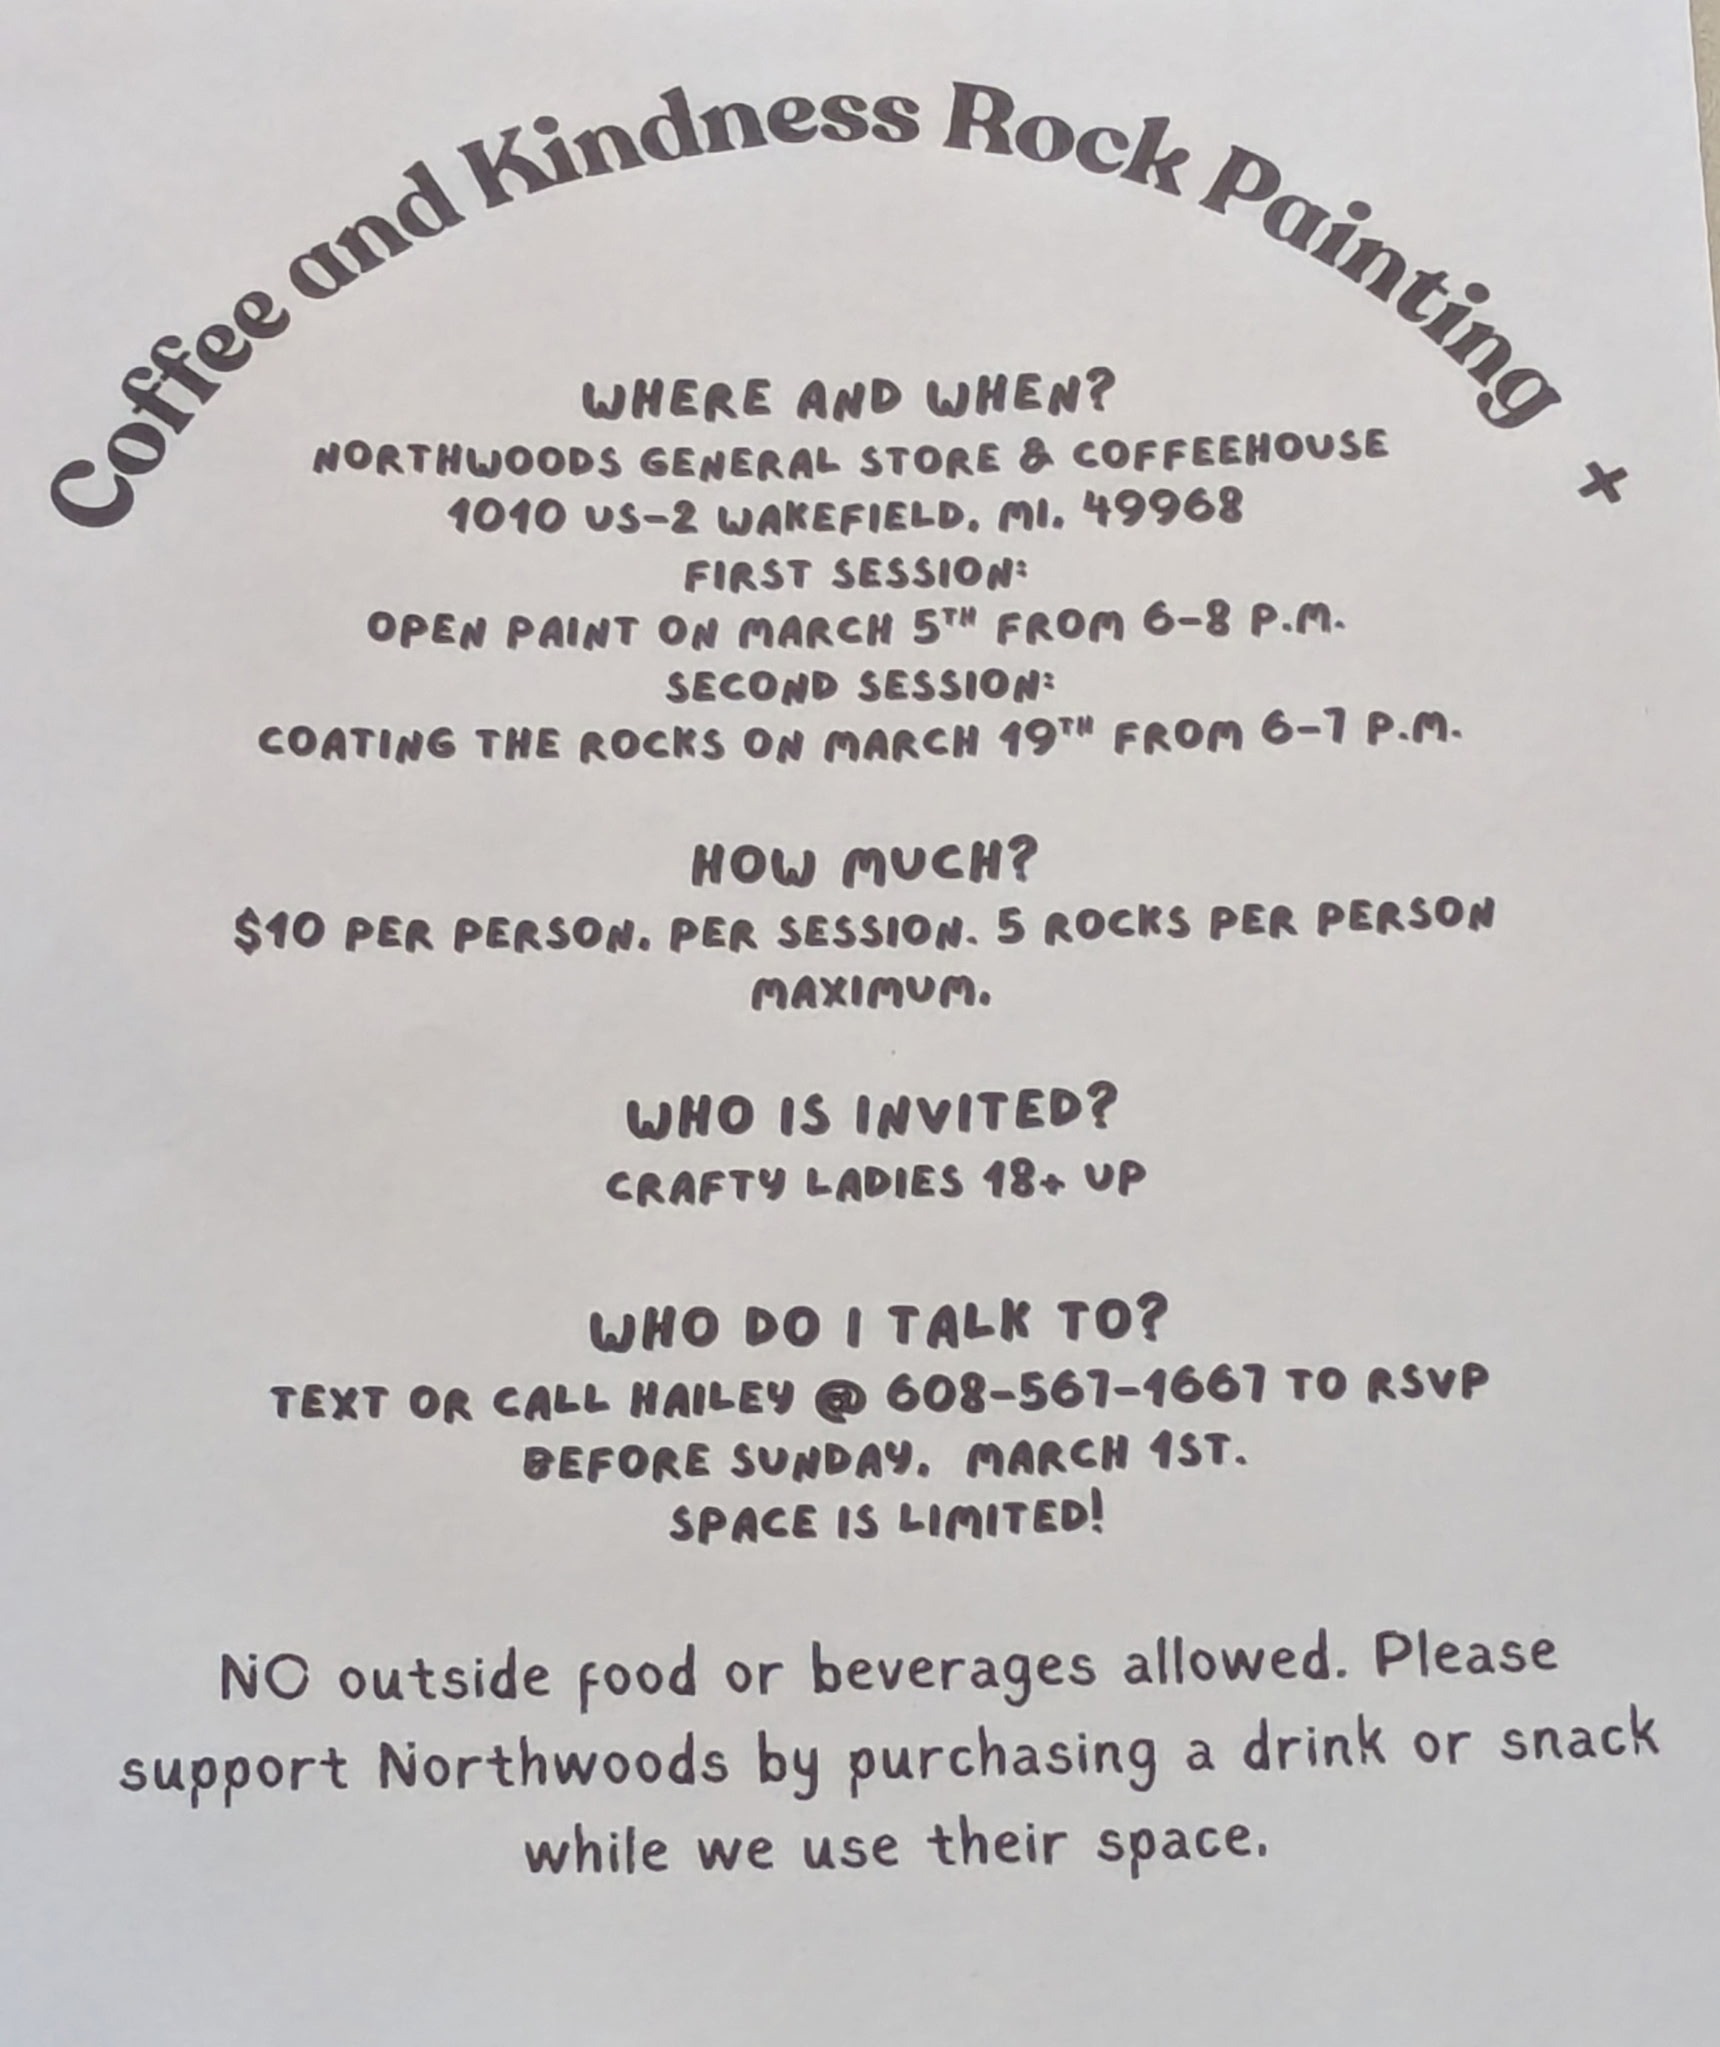 Coffee and Kindness Rock Painting +
WHERE AND WHEN?
NORTHWOODS GENERAL STORE & COFFEEHOUSE
1010 US-2 WAKEFIELD, MI, 49968
FIRST SESSION:
OPEN PAINT ON MARCH 5TH FROM 6-8 P.M.
SECOND SESSION:
COATING THE ROCKS ON MARCH 19TH FROM 6-7 P.M.
HOW MUCH?
$10 PER PERSON, PER SESSION. 5 ROCKS PER PERSON
MAXIMUM.
WHO IS INVITED?
CRAFTY LADIES 18+ UP
WHO DO I TALK TO?
TEXT OR CALL HAILEY @ 608-567-1667 TO RSVP
BEFORE SUNDAY, MARCH 1ST.
SPACE IS LIMITED!
NO outside food or beverages allowed. Please
support Northwoods by purchasing a drink or snack
while we use their space.